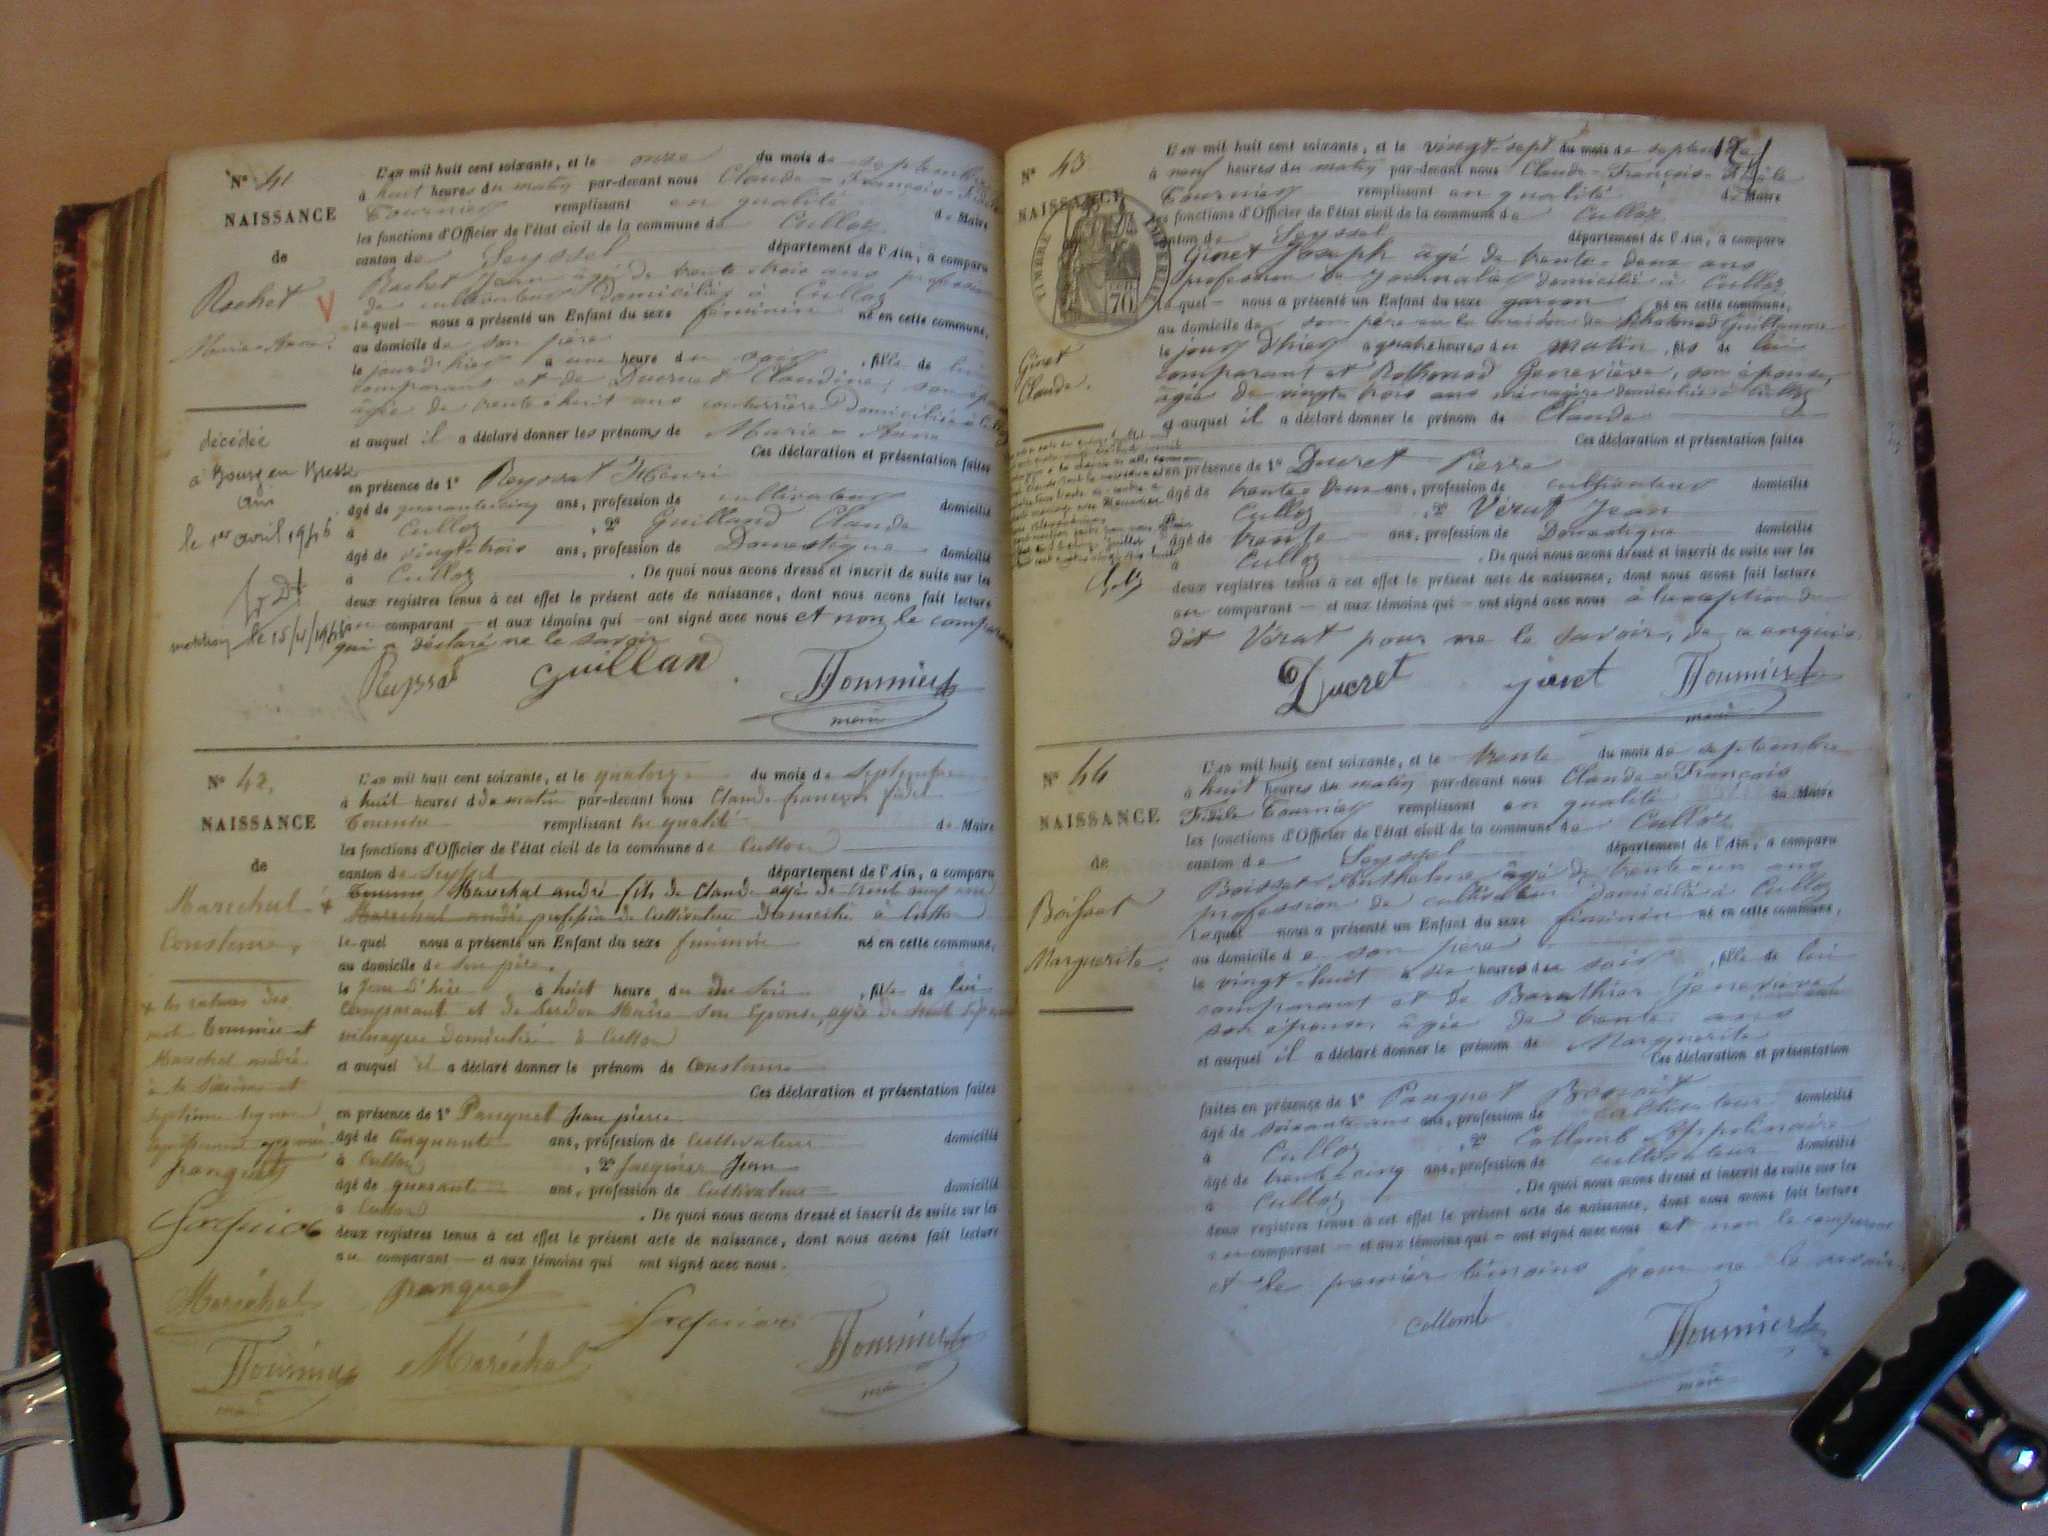 N° 41
NAISSANCE
de
Rochet
Marie-Anne.
décédée
à Bourg en Bresse
Ain
le 1er avril 1946
le 15/4/1946
L'an mil huit cent soixante, et le onze du mois de septembre
à huit heures du matin par-devant nous Claude-François-Fidèle
Tournier remplissant en qualité de Maire
les fonctions d'Officier de l'état civil de la commune de Culloz
canton de Seyssel département de l'Ain, a comparu
Rochet Jean âgé de trente trois ans profession
de cultivateur domicilié à Culloz
lequel nous a présenté un Enfant du sexe féminin né en cette commune,
au domicile de son père
le jour d'hier à une heure du soir, fille de lui
comparant et de Ducruet Claudine, son épouse
âgée de trente-huit ans couturière domiciliée à Culloz
et auquel il a déclaré donner les prénoms de Marie-Anne
Ces déclaration et présentation faites
en présence de 1° Reyssat Henri
âgé de quarante cinq ans, profession de cultivateur domicilié
à Culloz, 2° Guilland Claude
âgé de vingt-trois ans, profession de Domestique domicilié
à Culloz. De quoi nous avons dressé et inscrit de suite sur les
deux registres tenus à cet effet le présent acte de naissance, dont nous avons fait lecture
au comparant et aux témoins qui ont signé avec nous et non le comparant
qui a déclaré ne le savoir
Guillan
Tournier
maire
N° 42.
NAISSANCE
de
Maréchal
Constance,
L'an mil huit cent soixante, et le quatorze du mois de Septembre
à huit heures du matin par-devant nous Claude françois fidel
Tournier remplissant en qualité de Maire
les fonctions d'Officier de l'état civil de la commune de Culloz
canton de Seyssel département de l'Ain, a comparu
Tournier Maréchal andré fils de Claude agé de trente neuf ans
Maréchal andré profession de Cultivateur domicilié à Culloz
lequel nous a présenté un Enfant du sexe feminin né en cette commune,
au domicile de son père.
le Jour d'hier à huit heure du soir, fille de lui
comparant et de Marie son épouse, agée de trente sept ans
ménagère domiciliée à Culloz
et auquel il a déclaré donner le prénom de Constance
Ces déclaration et présentation faites
en présence de 1° Panquet Jean pierre
âgé de Cinquante ans, profession de Cultivateur domicilié
à Culloz, 2° Jacquier Jean
âgé de quarante ans, profession de Cultivateur domicilié
à Culloz. De quoi nous avons dressé et inscrit de suite sur les
deux registres tenus à cet effet le présent acte de naissance, dont nous avons fait lecture
au comparant et aux témoins qui ont signé avec nous.
les ratures des
mots Tournier et
Maréchal andré
à la sixième et
septième lignes
panquet
Jacquier
Maréchal
panquet
Jacquier
Tournier
maire
Tournier
Maréchal
maire
12
N° 43
NAISSANCE
TIMBRE IMPERIAL
70
Ginet
Claude.
L'an mil huit cent soixante, et le vingt-sept du mois de septembre
à neuf heures du matin par-devant nous Claude-François-Fidèle
Tournier remplissant en qualité de Maire
les fonctions d'Officier de l'état civil de la commune de Culloz
canton de Seyssel département de l'Ain, a comparu
Ginet Joseph âgé de trente-deux ans
profession de journalier domicilié à Culloz
lequel nous a présenté un Enfant du sexe garçon né en cette commune,
au domicile de son père en la maison de Guillaume
le jour d'hier à quatre heures du matin, fils de lui
comparant et Geneviève, son épouse,
âgée de vingt-trois ans ménagère domiciliée à Culloz
et auquel il a déclaré donner le prénom de Claude
Ces déclaration et présentation faites
en présence de 1° Ducret Pierre
âgé de trente-deux ans, profession de cultivateur domicilié
Culloz, 2° Vérut Jean
âgé de trente ans, profession de Domestique domicilié
à Culloz. De quoi nous avons dressé et inscrit de suite sur les
deux registres tenus à cet effet le présent acte de naissance, dont nous avons fait lecture
au comparant et aux témoins qui ont signé avec nous à l'exception du
dit Vérut pour ne le savoir, de ce enquis.
Ducret
ginet
Tournier
maire
N° 44
NAISSANCE
de
Boissat
Marguerite.
L'an mil huit cent soixante, et le trente du mois de septembre
à huit heures du matin par-devant nous Claude-François
Fidèle Tournier remplissant en qualité de Maire
les fonctions d'Officier de l'état civil de la commune de Culloz
canton de Seyssel département de l'Ain, a comparu
Boissat Anthelme âgé de trente-un ans
profession de cultivateur domicilié à Culloz
lequel nous a présenté un Enfant du sexe féminin né en cette commune,
au domicile de son père
le vingt-huit à six heures du soir, fille de lui
comparant et de Barathier Geneviève
son épouse, âgée de trente ans
et auquel il a déclaré donner le prénom de Marguerite
Ces déclaration et présentation
faites en présence de 1° Panquet Benoît
âgé de soixante ans, profession de cultivateur domicilié
à Culloz, 2° Collomb Appolinaire
âgé de trente-cinq ans, profession de cultivateur domicilié
à Culloz. De quoi nous avons dressé et inscrit de suite sur les
deux registres tenus à cet effet le présent acte de naissance, dont nous avons fait lecture
au comparant et aux témoins qui ont signé avec nous et non le comparant
et le premier témoins pour ne le savoir.
Collomb
Tournier
maire